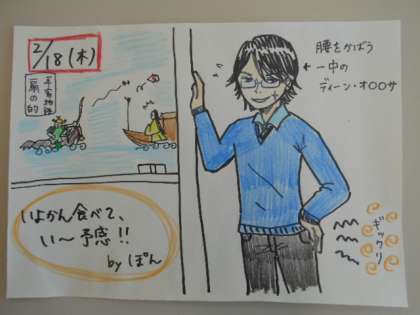 2/18(木)
平家物語
扇の的
腰をかばう
一中の
ディーン・オ〇〇サ
いよかん食べて、
い〜予感!!
by ぽん
ギックリ